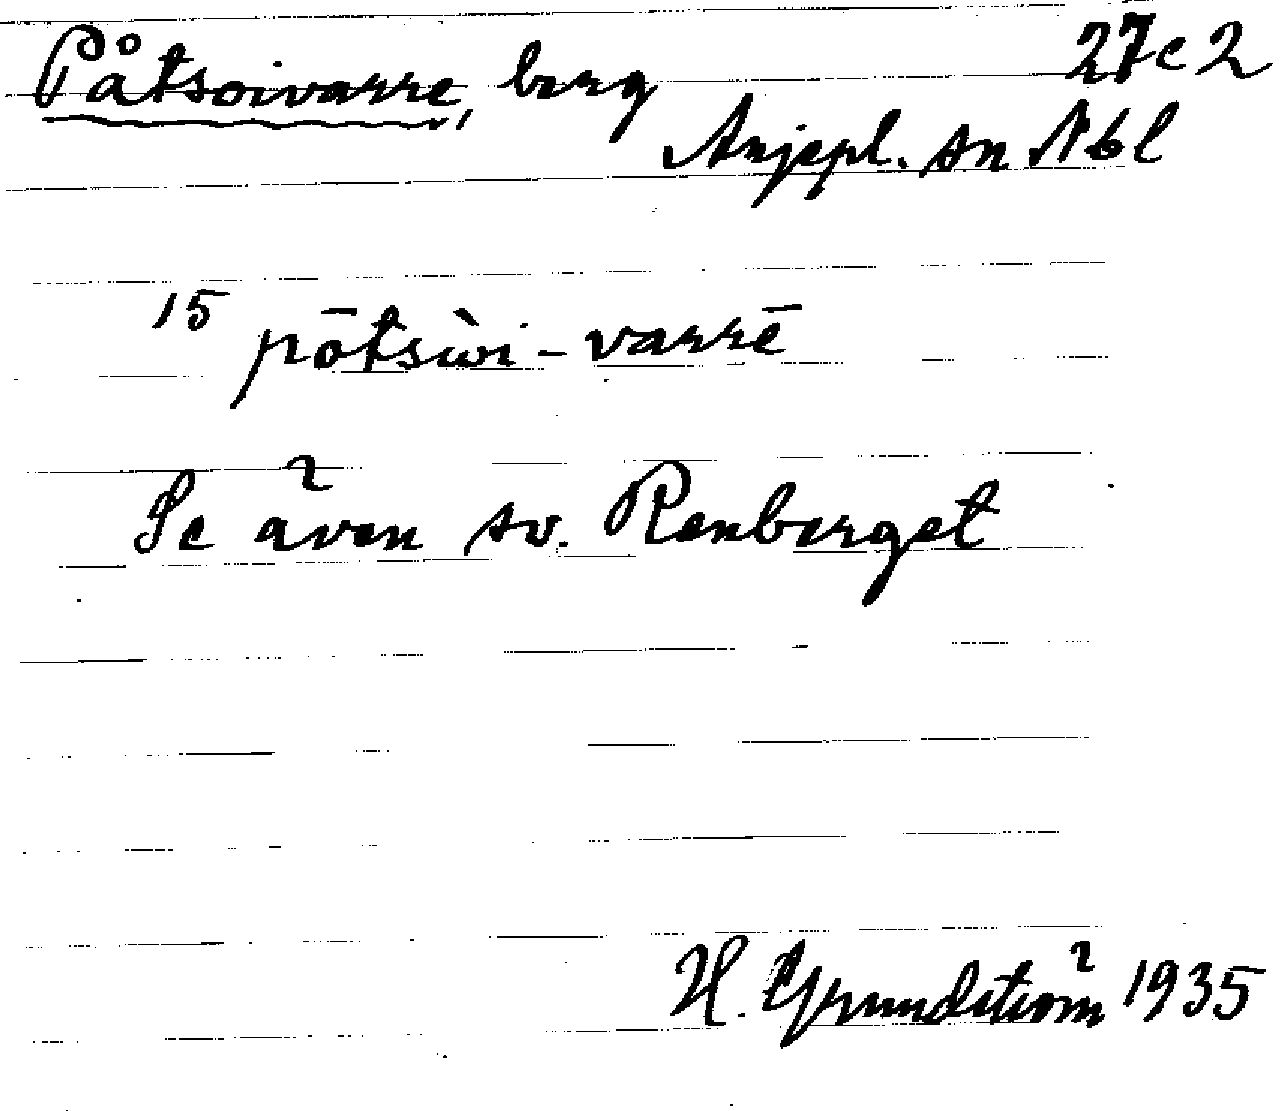 Påtsoivarre, berg 27c2
Arjepl. sn Nbl
15 pōtsẁi-varrē
Se även sv. Renberget
H. Grundström 1935